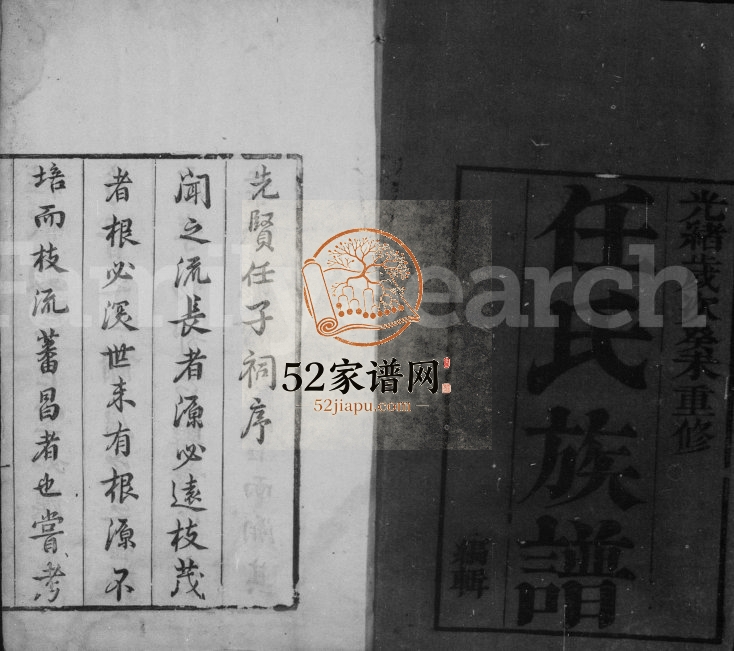 光緒歲次桼未重修
任氏族譜
編輯
先賢任子祠序
聞之流長者源必遠枝茂
者根必深世未有根源不
培而枝流蕃昌者也嘗考
FamilySearch
52家谱网
52jiapu.com